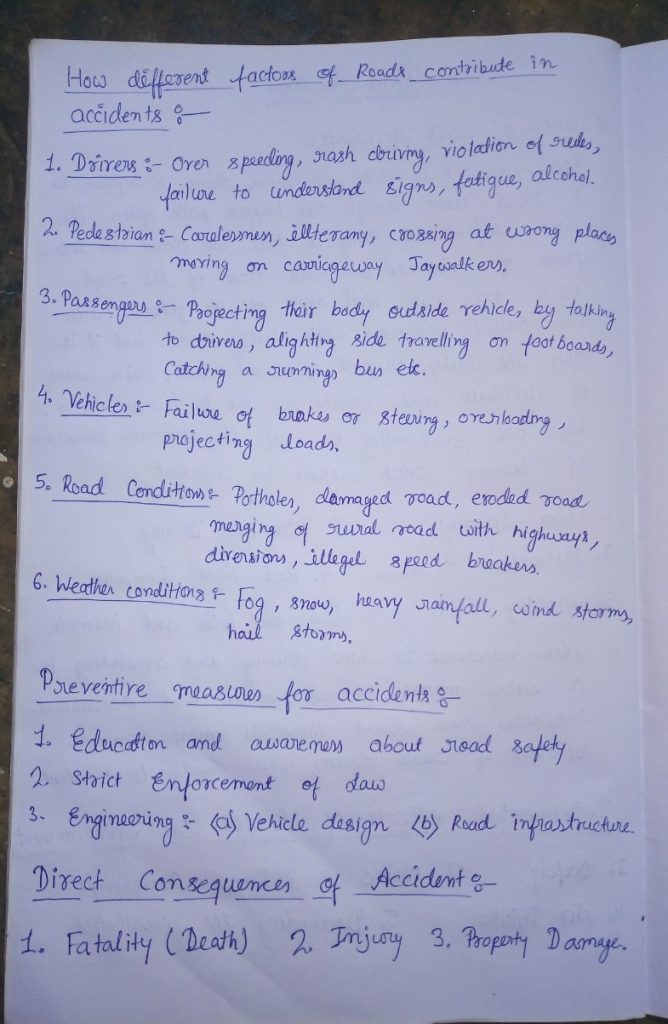 How different factors of Roads contribute in
accidents :-
1. Drivers :- Over speeding, rash driving, violation of rules,
failure to understand signs, fatigue, alcohol.
2. Pedestrian :- Carelessness, illterany, crossing at wrong places
moving on carriageway Jaywalkers.
3. Passengers :- Projecting their body outside vehicle, by talking
to drivers, alighting side travelling on footboards,
Catching a runnings bus etc.
4. Vehicles :- Failure of brakes or steering, overloading,
projecting loads.
5. Road Conditions :- Potholes, damaged road, eroded road
merging of rural road with highways,
diversions, illegel speed breakers.
6. Weather conditions :- Fog, snow, heavy rainfall, wind storms,
hail storms.
Preventive measures for accidents :-
1. Education and awareness about road safety
2. Strict Enforcement of Law
3. Engineering :- (a) Vehicle design (b) Road infrastructure.
Direct Consequences of Accident :-
1. Fatality (Death) 2. Injury 3. Property Damage.